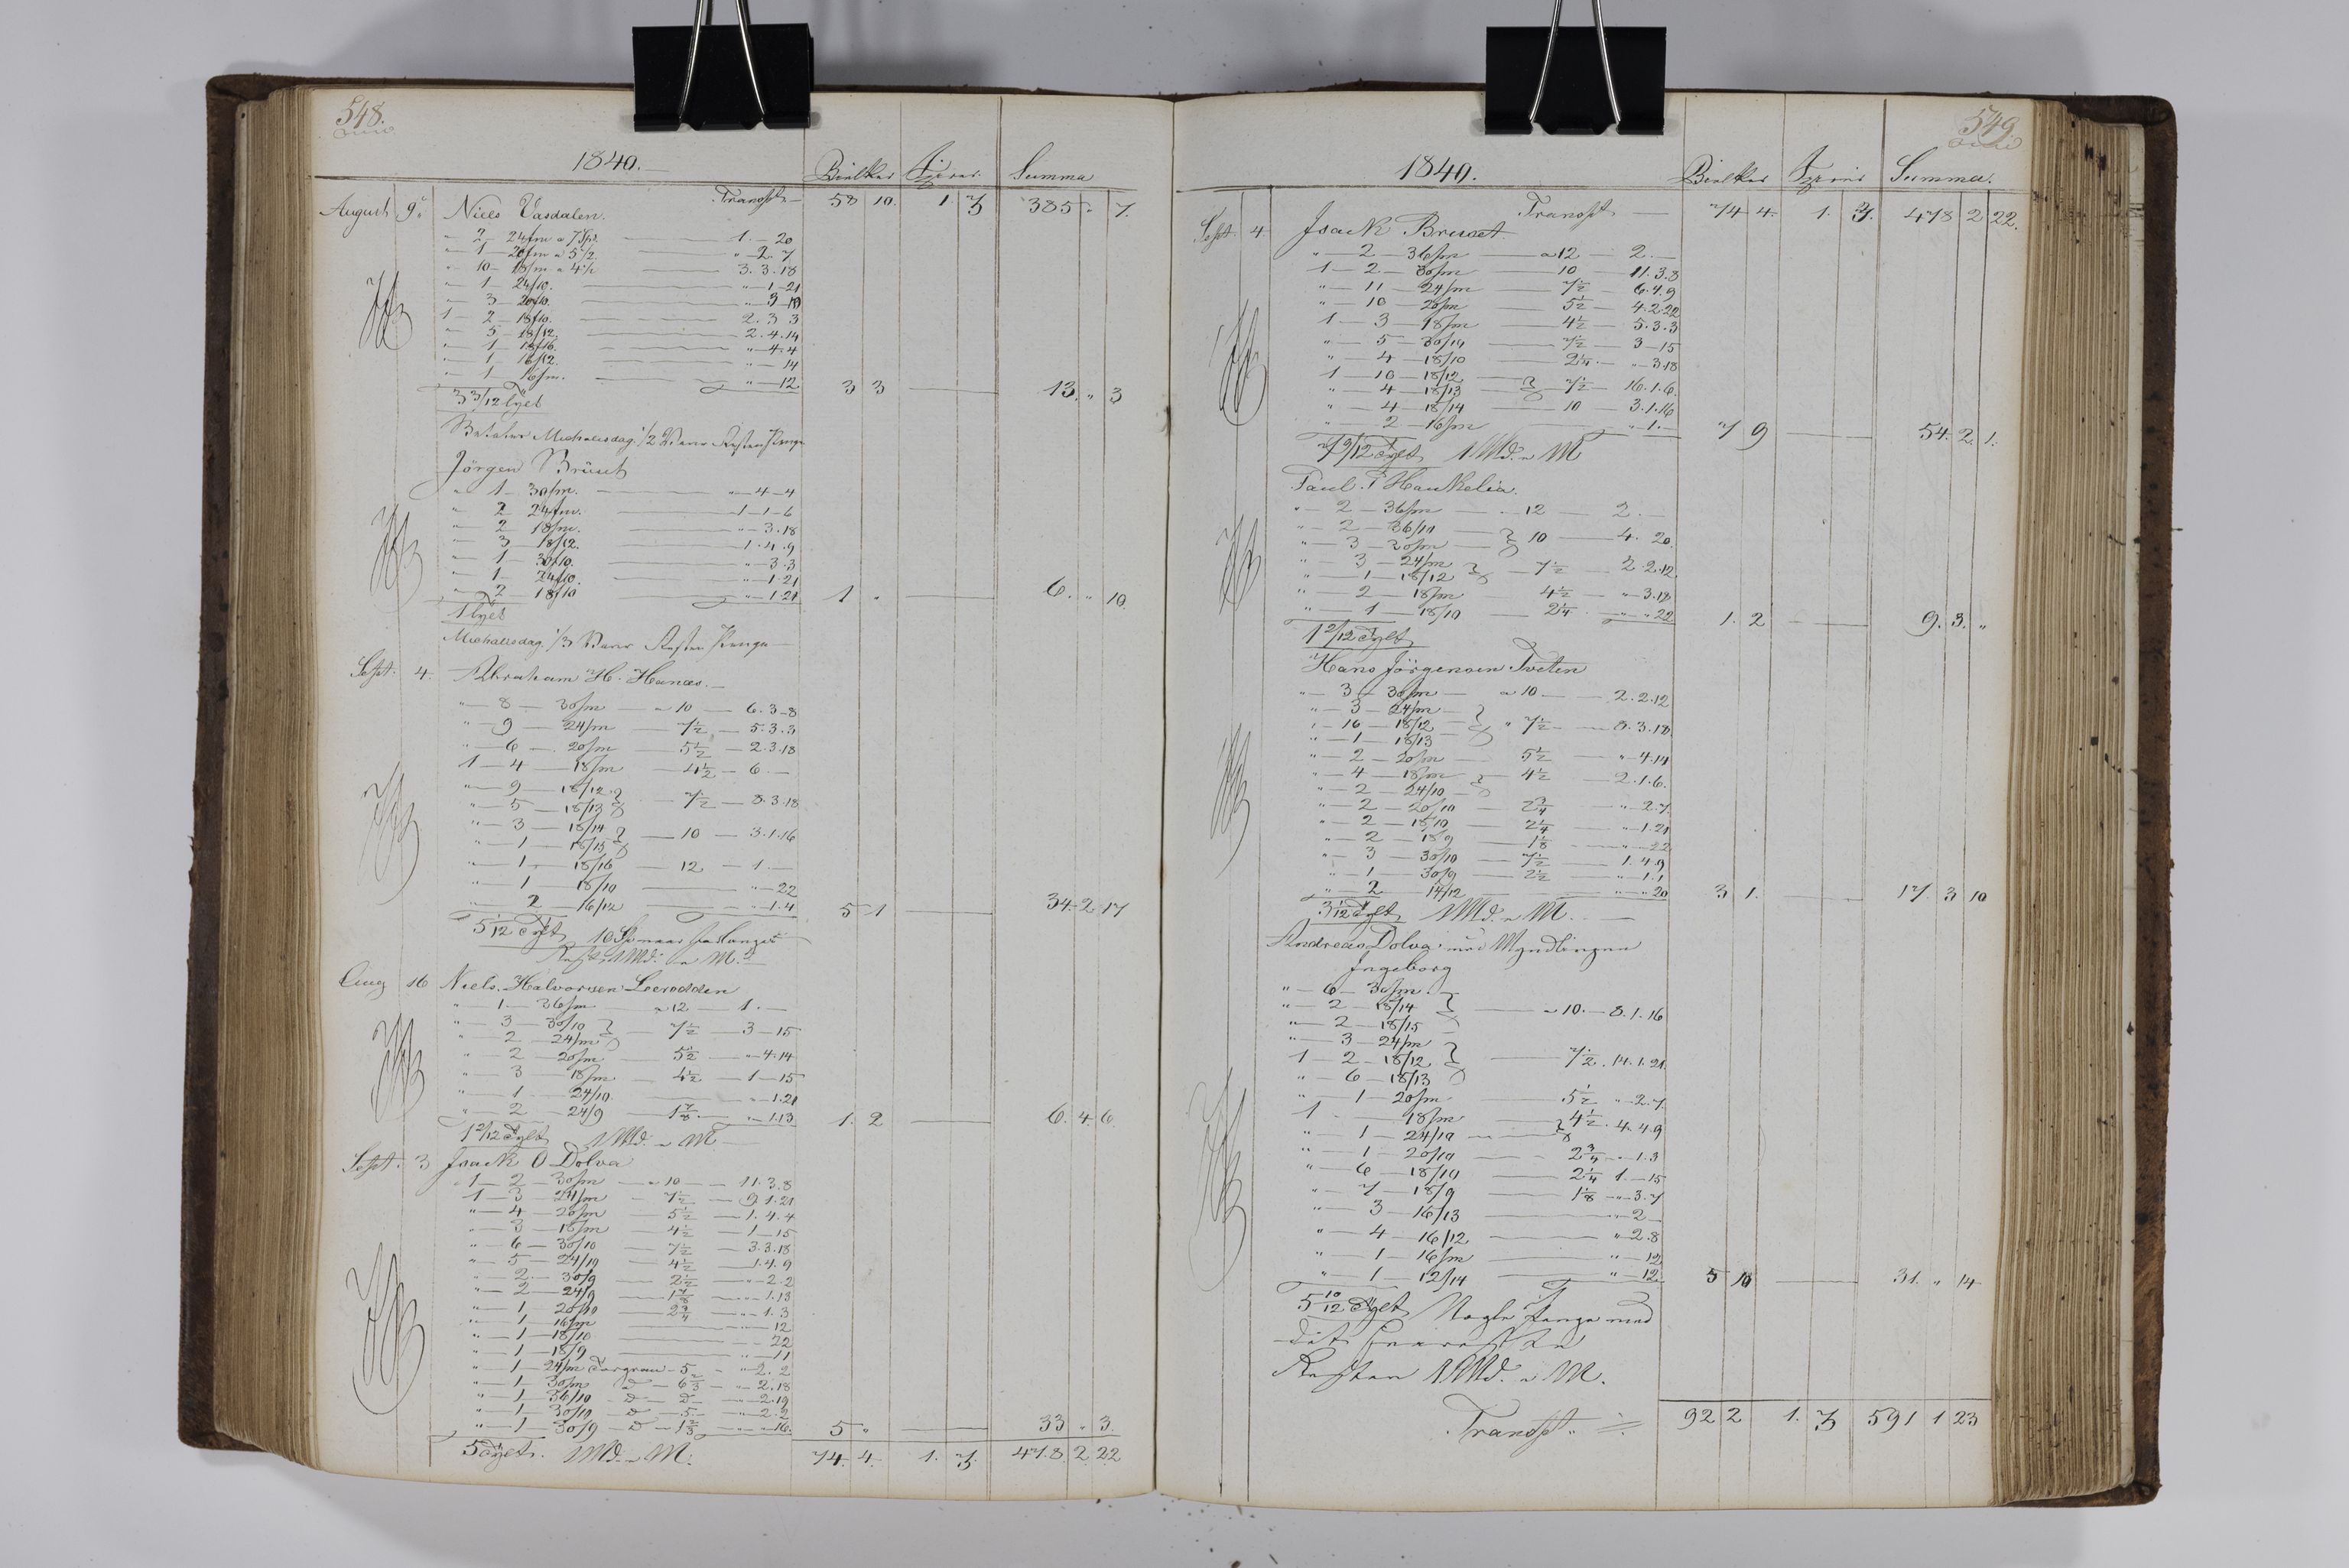 548.
1840. Bielker Summa
August 9. Niels Vasdalen. Transpt — 58 10. 1. 385 " 7.
" 2 — 24/m a 7 — 1. — 20
" 1 — 20/m a 5 1/2 — " 2. 7
" 10 — 18/m a 4 1/2 — 3. 3. 18
" 1 — 24/10. — " 1 — 21
" 3 — 20/10. — " 3
1 — 2 — 18/10. — 2. 3 3
" 5 — 18/12. — 2. 4. 14
" 1 — 18/16. — " 4. 4
" 1 — 16/12. — " — 14
" 1 — 16/m. — " — 12 3 3 — 13. " 3
3 3/12 Tylt
Betales Michaelsdag 1/2 Resten Penge
Jörgen Brüset
" 1 — 30/m. — " 4 — 4
" 2 24/m. — 1 — 1 — 6
" 2 18/m. — " 3. 18
" 3 — 18/12. — 1. 4. 9
" 1 — 30/10. — " 3. 3
" 1 — 24/10. — " 1. 21
" 2 — 18/10 — " 1. 21 1 " — 6. " 10.
1 Tylt
Michaelsdag 1/3 Resten Penge —
Sept: 4. Abraham H. Hanaes. —
" 8 — 30/m — a 10 — 6. 3 — 8
" 9 — 24/m — 7 1/2 — 5. 3. 3
" 6 — 20/m — 5 1/2 — 2. 3. 18
1 — 4 — 18/m — 4 1/2 — 6 —
" 9 — 18/12.
" 5 — 18/13 — 7 1/2 — 8. 3. 18
" 3 — 18/14
" 1 — 18/15 — 10 — 3. 1. 16
" 1 — 18/16 — 12 — 1 —
" 1 — 18/10 — " — 22
" 2 — 16/12 — " 1. 4 5 1 — 34. 2 17
5 1/12 Tylt
Resten 1 Md. a M.
Aug 16 Niels Halvorsen Leerodden
" 1 — 36/m — a 12 — 1. —
" 3 — 30/10
" 2 — 24/m — 7 1/2 — 3 — 15
" 2 — 20/m — 5 1/2 — " 4. 14
" 3 — 18/m — 4 1/2 — 1 — 15
" 1 — 24/10. — " 1. 21
" 2 — 24/9 — 1 7/8 — " 1. 13 1. 2 — 6. 4. 6.
1 2/12 Tylt 1 Md. a M —
Sept: 3 Isack O Dolva
1 — 2 — 30/m — a 10 — 11. 3. 8
1 — 3 — 24/m — 7 1/2 — 9 1. 21
" 4 — 20/m — 5 1/2 — 1. 4. 4
" 3 — 18/m — 4 1/2 — 1 — 15
" 6 — 30/10 — 7 1/2 — 3. 3. 18
" 5 — 24/10 — 4 1/2 — 1. 4. 9
" 2 — 30/9 — 2 1/2 — " 2. 2
" 2 — 24/9 — 1 7/8 — " 1. 13
" 1 — 20/10 — 2 3/4 — " 1. 3
" 1 — 16/m — 12
" 1 — 18/10 — 22
" 1 — 18/9 — " 11
" 1 — 24/m — 5 — " 2. 2
" 1 — 30/m — 6 2/3 — " 2. 18
" 1 — 36/10 — " 2. 19
" 1 — 30/10 — 5 — " 2. 2
" 1 — 30/9 — 1 2/3 — " 16. 5 " — 33 " 3.
5 Tylt. 1 Md. a M. 74. 4. 1. 478 2 22
549.
1840. Bielker Summa.
Transpt — 74 4. 1. 478 2 22.
Sept: 4 Isack Brüset.
" 2 — 36/m — a 12 — 2. —
1 — 2 — 30/m — 10 — 11. 3. 8
" 11 — 24/m — 7 1/2 — 6. 4. 9
" 10 — 20/m — 5 1/2 — 4. 2. 22
1 — 3 — 18/m — 4 1/2 — 5. 3. 3
" 5 — 30/10 — 7 1/2 — 3 — 15
" 4 — 18/10 — 2 1/4 — " 3. 18
1 — 10 — 18/12
" 4 — 18/13 — 7 1/2 — 16. 1. 6.
" 4 — 18/14 — 10 — 3. 1. 16
" 2 — 16/m — " 1. — 7 9 — 54. 2. 1.
7 9/12 Tylt 1 Md. a M
Paul T Haukelia.
" 2 — 36/m — 12 — 2. —
" 2 — 36/10
" 3 — 30/m — 10 — 4. 20.
" 3 — 24/m
" 1 — 18/12 — 7 1/2 — 2. 2. 12
" 2 — 18/m — 4 1/2 — " 3. 18
" 1 — 18/10 — 2 1/4 — " " 22 1. 2 — 9. 3. "
1 2/12 Tylt
Hans Jörgensen Tveten
" 3 — 30/m — a 10 — 2. 2. 12
" 3 — 24/m
" 10 — 18/12 " 7 1/2 — 8. 3. 18
" 1 — 18/13
" 2 — 20/m — 5 1/2 — " 4. 14
" 4 — 18/m — 4 1/2 — 2. 1. 6.
" 2 — 24/10
" 2 — 20/10 — 2 3/4 — " 2. 7
" 2 — 18/10 — 2 1/4 — " 1. 21
" 2 — 18/9 — 1 1/8 — " 22
" 3 — 30/10 — 7 1/2 — 1. 4. 9
" 1 — 30/9 — 2 1/2 — " 1. 1
" 2 — 14/12 — " " 20 3 1. — 17. 3 10
3 1/12 Tylt 1 Md. a M. —
Andreas Dolva med Myndlingen
Ingeborg
" 6 — 30/m.
" 2 — 18/14 — a 10. — 8. 1. 16
" 2 — 18/15
" 3 — 24/m
1 — 2 — 18/12 — 7 1/2. 14. 1. 21
" 6 — 18/13
" 1 — 20/m — 5 1/2 " 2. 7
1 — 18/m — 4 1/2. 4. 4. 9
" 1 — 24/10
" 1 — 20/10 — 2 3/4 " 1. 3
" 6 — 18/10 — 2 1/4 1. — 15
" 7 — 18/9 — 1 1/8 — " 3. 7
" 3 — 16/13 — " 2 —
" 4 — 16/12 — " 2. 8
" 1 — 16/m — " 12
" 1 — 12/14 — " 12. 5 10 — 31. " 14
5 10/12 Tylt Nogle Penge med
det
Resten 1 Md. a M.
Transpt. 92 2 1. 591 1 23